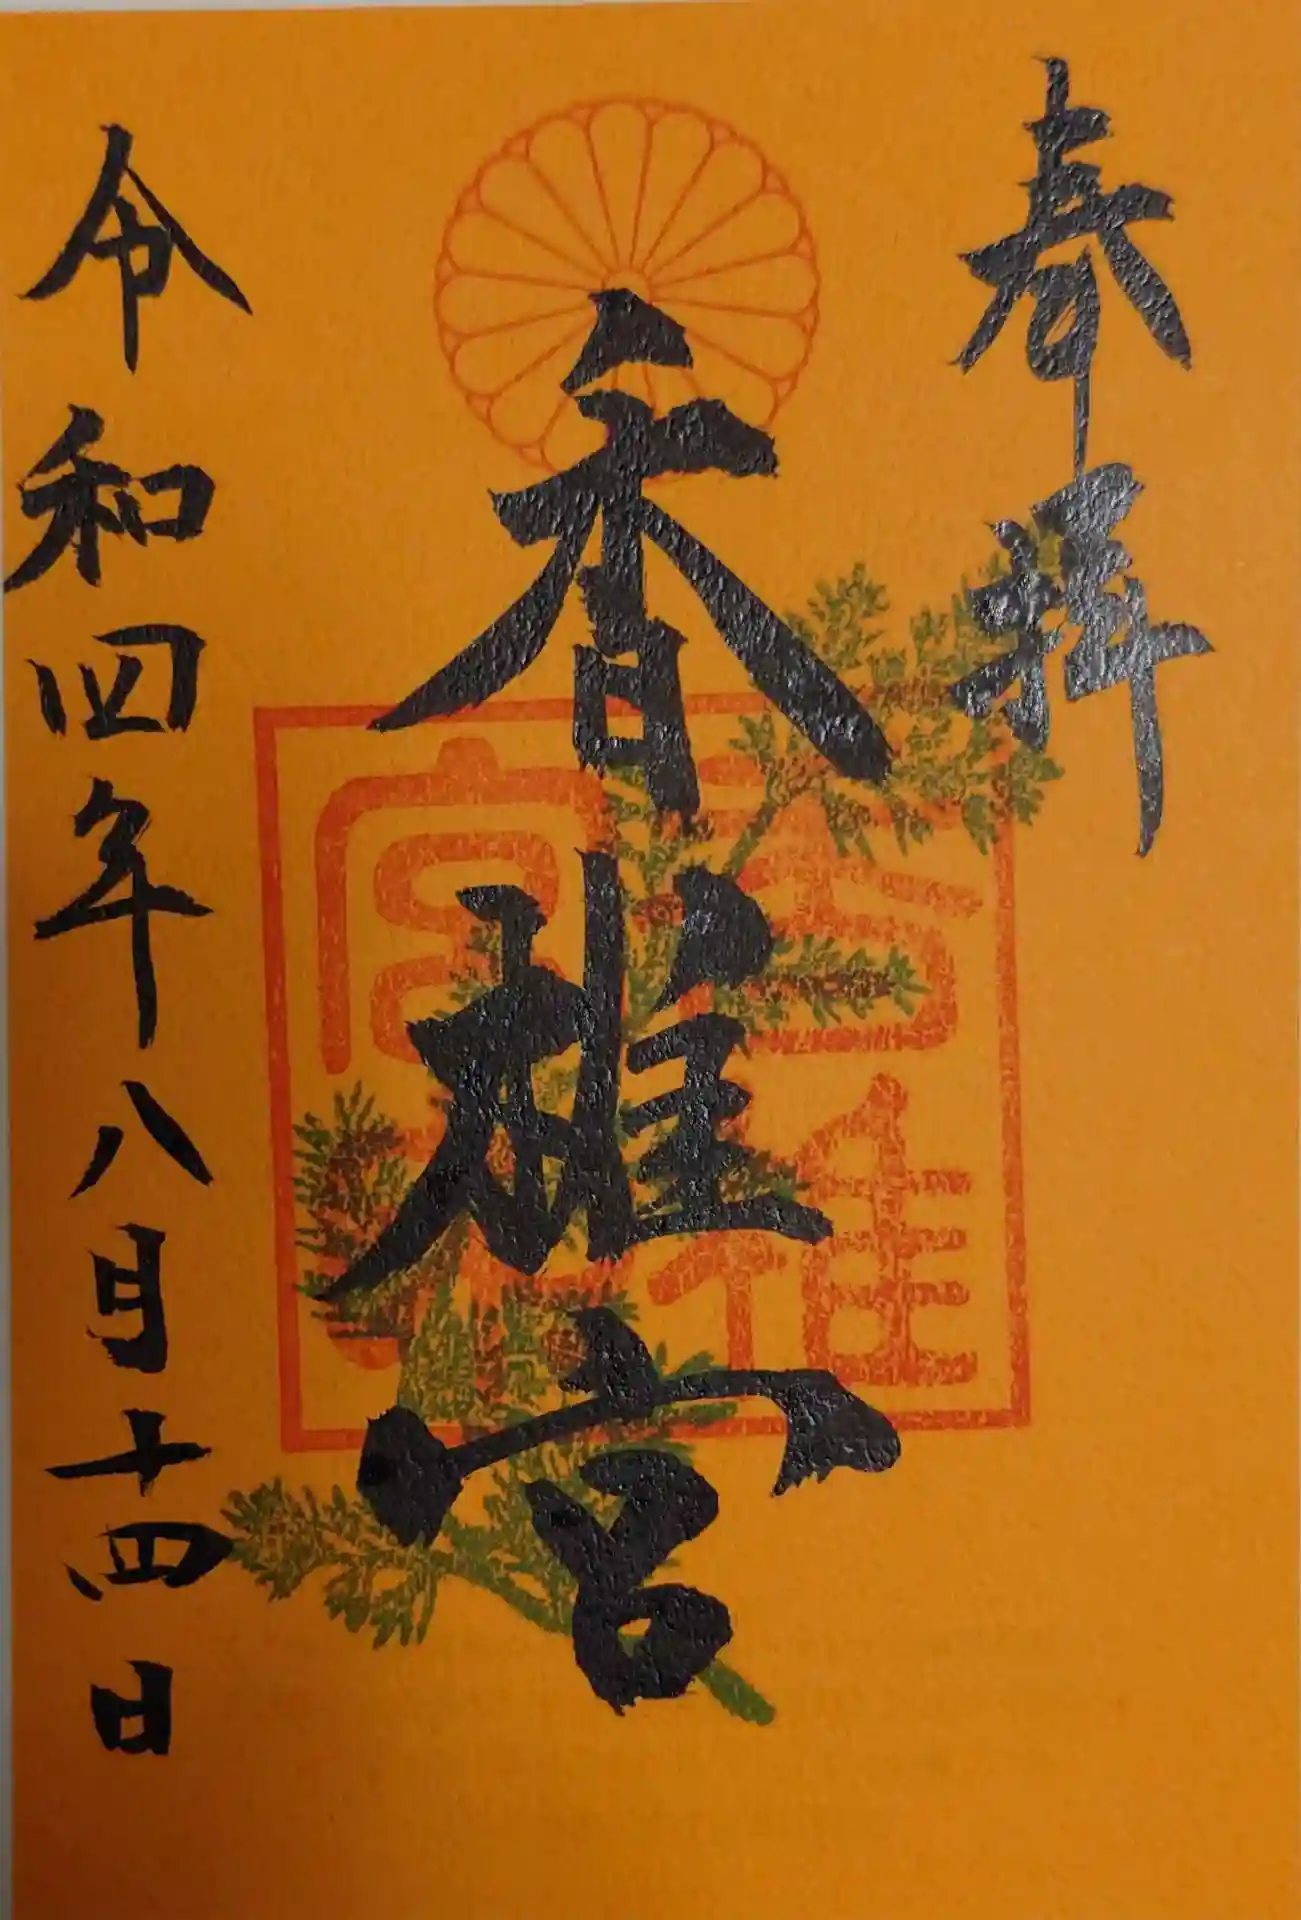 奉拝
香椎宮
香椎宮
令和四年八月十四日